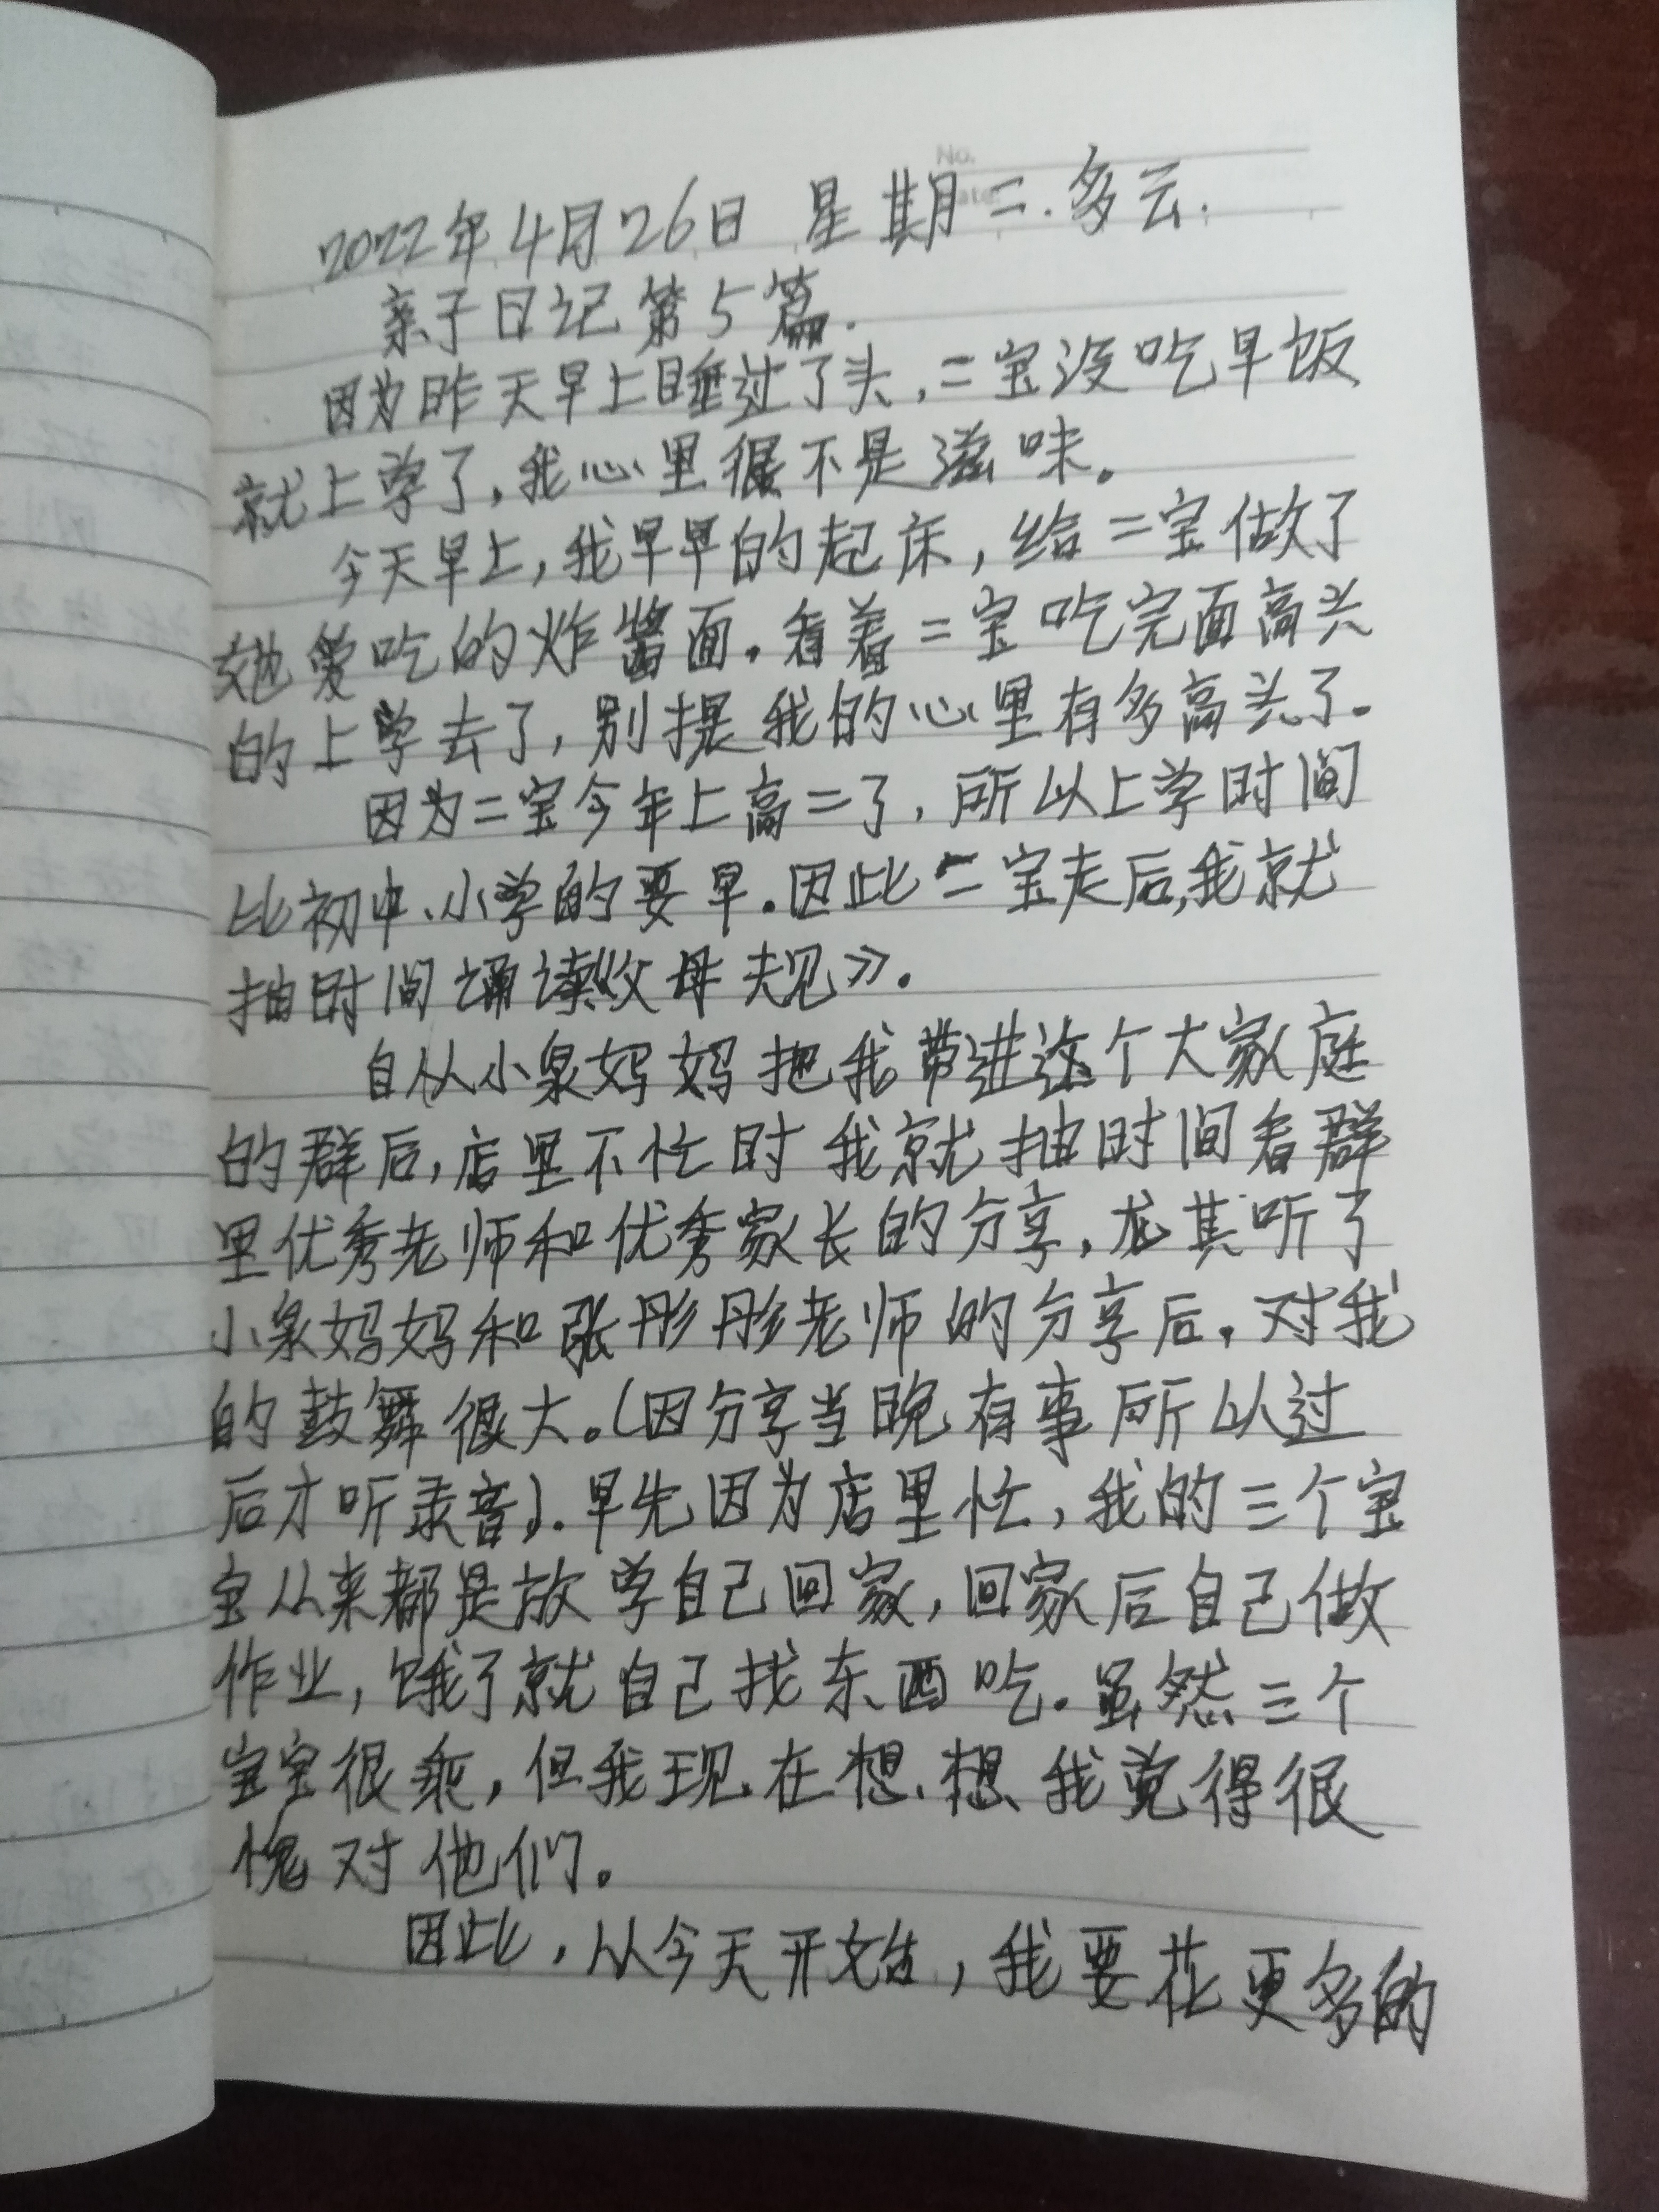 No.
2022年4月26日 星期二.多云.
亲子日记第5篇.
因为昨天早上睡过了头,二宝没吃早饭
就上学了,我心里很不是滋味。
今天早上,我早早的起床,给二宝做了
她爱吃的炸酱面。看着二宝吃完面高兴
的上学去了,别提我的心里有多高兴了。
因为二宝今年上高二了,所以上学时间
比初中、小学的要早。因此二宝走后,我就
抽时间诵读《父母规》。
自从小泉妈妈把我带进这个大家庭
的群后,店里不忙时我就抽时间看群
里优秀老师和优秀家长的分享,尤其听了
小泉妈妈和张彤彤老师的分享后,对我
的鼓舞很大。(因分享当晚有事所以过
后才听录音).早先因为店里忙,我的三个宝
宝从来都是放学自己回家,回家后自己做
作业,饿了就自己找东西吃。虽然三个
宝宝很乖,但我现在想想我觉得很
愧对他们。
因此,从今天开始,我要花更多的